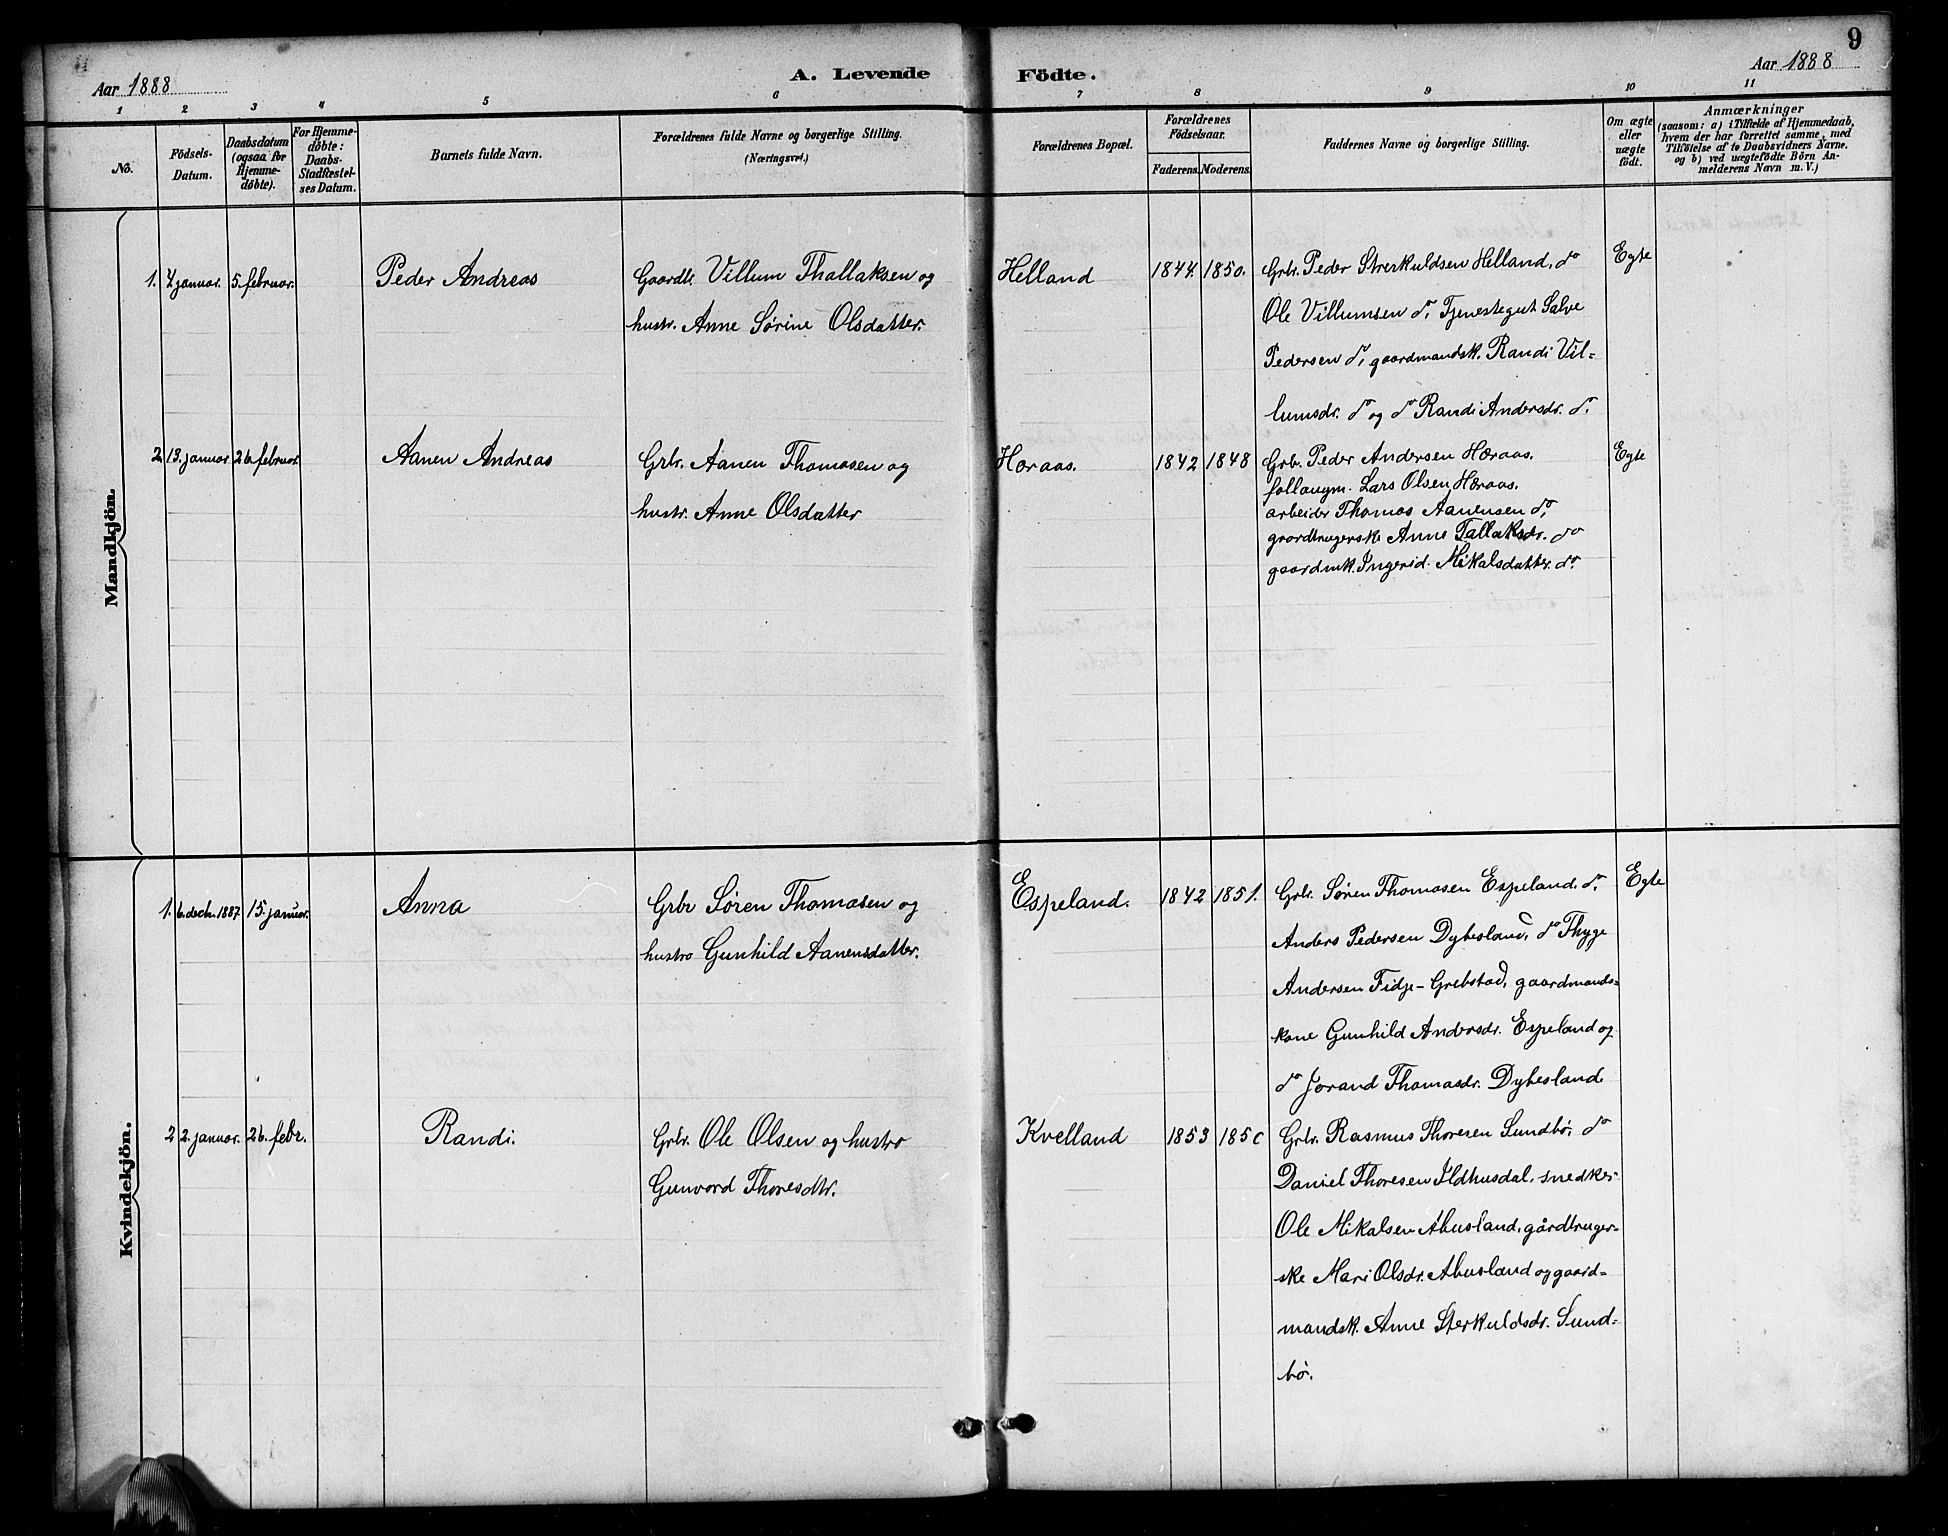 9
Aar 1888
A. Levende Födte.
Aar 1888
1 2 3 4 5 6 7 8 9 10 11
No.
Födsels-
Datum.
Daabsdatum
(ogsaa for
Hjemme-
döbte).
For Hjemme-
döbte:
Daabs-
Stadfæstel-
ses Datum.
Barnets fulde Navn.
Forældrenes fulde Navne og borgerlige Stilling.
(Næringsvei.)
Forældrenes Bopæl.
Forældrenes
Födselsaar.
Faderens. Moderens.
Faddernes Navne og borgerlige Stilling.
Om ægte
eller
uægte
födt.
Anmærkninger
(saasom: a) i Tilfælde af Hjemmedaab,
hvem der har forrettet samme, med
Tilföielse af to Daabsvidners Navne,
og b) ved uægtefödte Börn An-
melderens Navn m. V.)
Mandkjön.
1. 4 januar. 5. februar. Peder Andreas
Gaardbr. Villum Thallaksen og
hustr. Anne Sørine Olsdatter.
Helland 1844. 1850.
Grbr. Peder Sterkuldsen Helland, do
Ole Villumsen do, Tjenestegut Salve
Pedersen do, gaardmandsk. Randi Vil=
lumsdr. do og do Randi Andersdr. do.
Egte
2. 13. januar 26. februar. Aanen Andreas
Grbr. Aanen Thomasen og
hustr. Anne Olsdatter
Hæraas. 1842 1848
Grbr. Peder Andersen Hæraas.
follaugm. Lars Olsen Hæraas.
arbeider Thomas Aanensen do,
gaardbrugerske Anne Tallaksdr. do
gaardmk. Ingerid Mikalsdatter. do.
Egte
Kvindekjön.
1. 6. decbr. 1887 15. januar. Anna
Grbr Søren Thomasen og
hustro Gunhild Aanensdatter.
Espeland. 1842 1851.
Grbr. Søren Thomasen Espeland. do.
Anders Pedersen Dybesland, do Thyge
Andersen Fidje-Grebstad, gaardmands=
kone Gunhild Andersdr. Espeland og
do Jorand Thomasdr. Dybesland
Egte
2 2. januar. 26. febr. Randi.
Grbr. Ole Olsen og hustro
Gunvord Thoresdtr.
Kvelland 1853 1850
Grbr. Rasmus Thoresen Sundbø, do
Daniel Thoresen Ildhusdal, snedker
Ole Mikalsen Åbusland, gårdbruger-
ske Mari Olsdr. Abusland og gaard=
mandsk. Anne Sterkuldsdr. Sund=
bø.